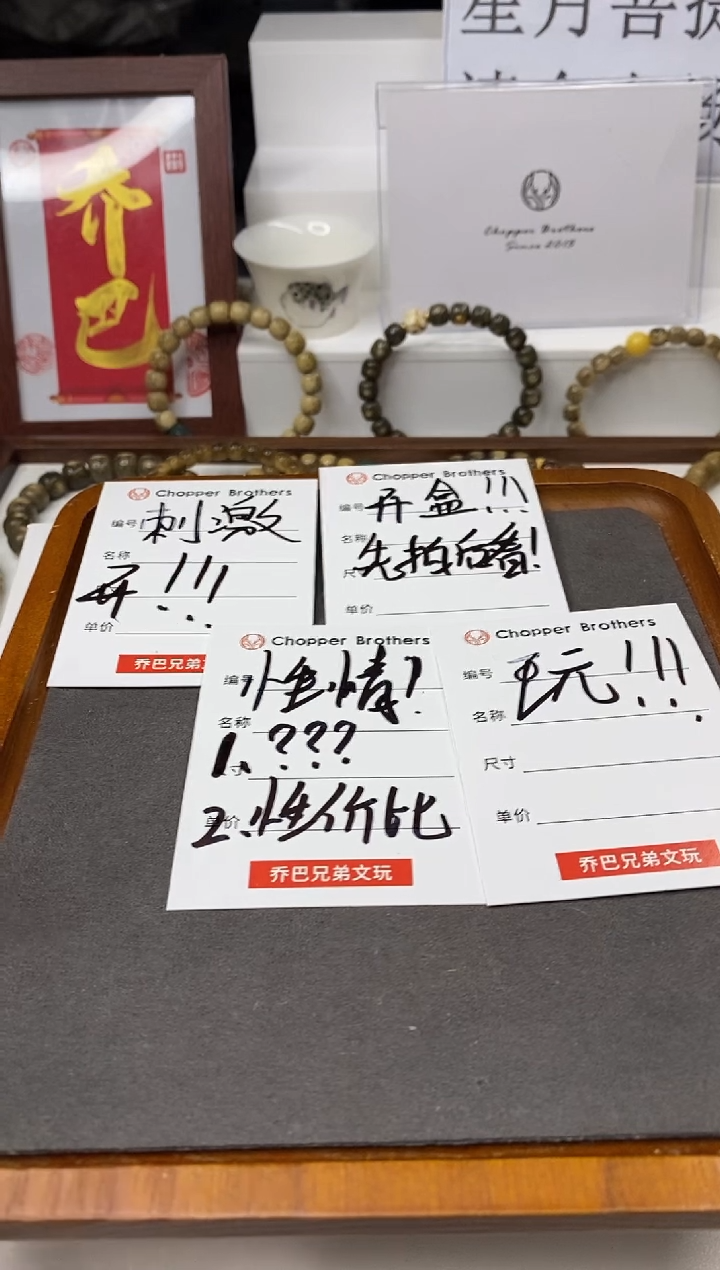 星月菩提
乔
巴
Chopper Brothers
Since 2013
Chopper Brothers
编号 刺激
名称
开!!!
单价
乔巴兄弟
Chopper Brothers
编号 开盒!!!
名称
先拍后看!
单价
Chopper Brothers
编号 性情?
名称
1. ???
寸
2. 性价比
单价
乔巴兄弟文玩
Chopper Brothers
编号 玩!!!
名称
尺寸
单价
乔巴兄弟文玩